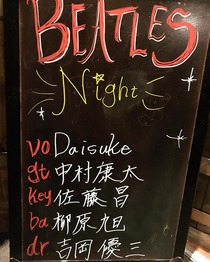 BEATLES
Night
vo Daisuke
gt 中村康太
key 佐藤昌
ba 柳原旭
dr 吉岡優三